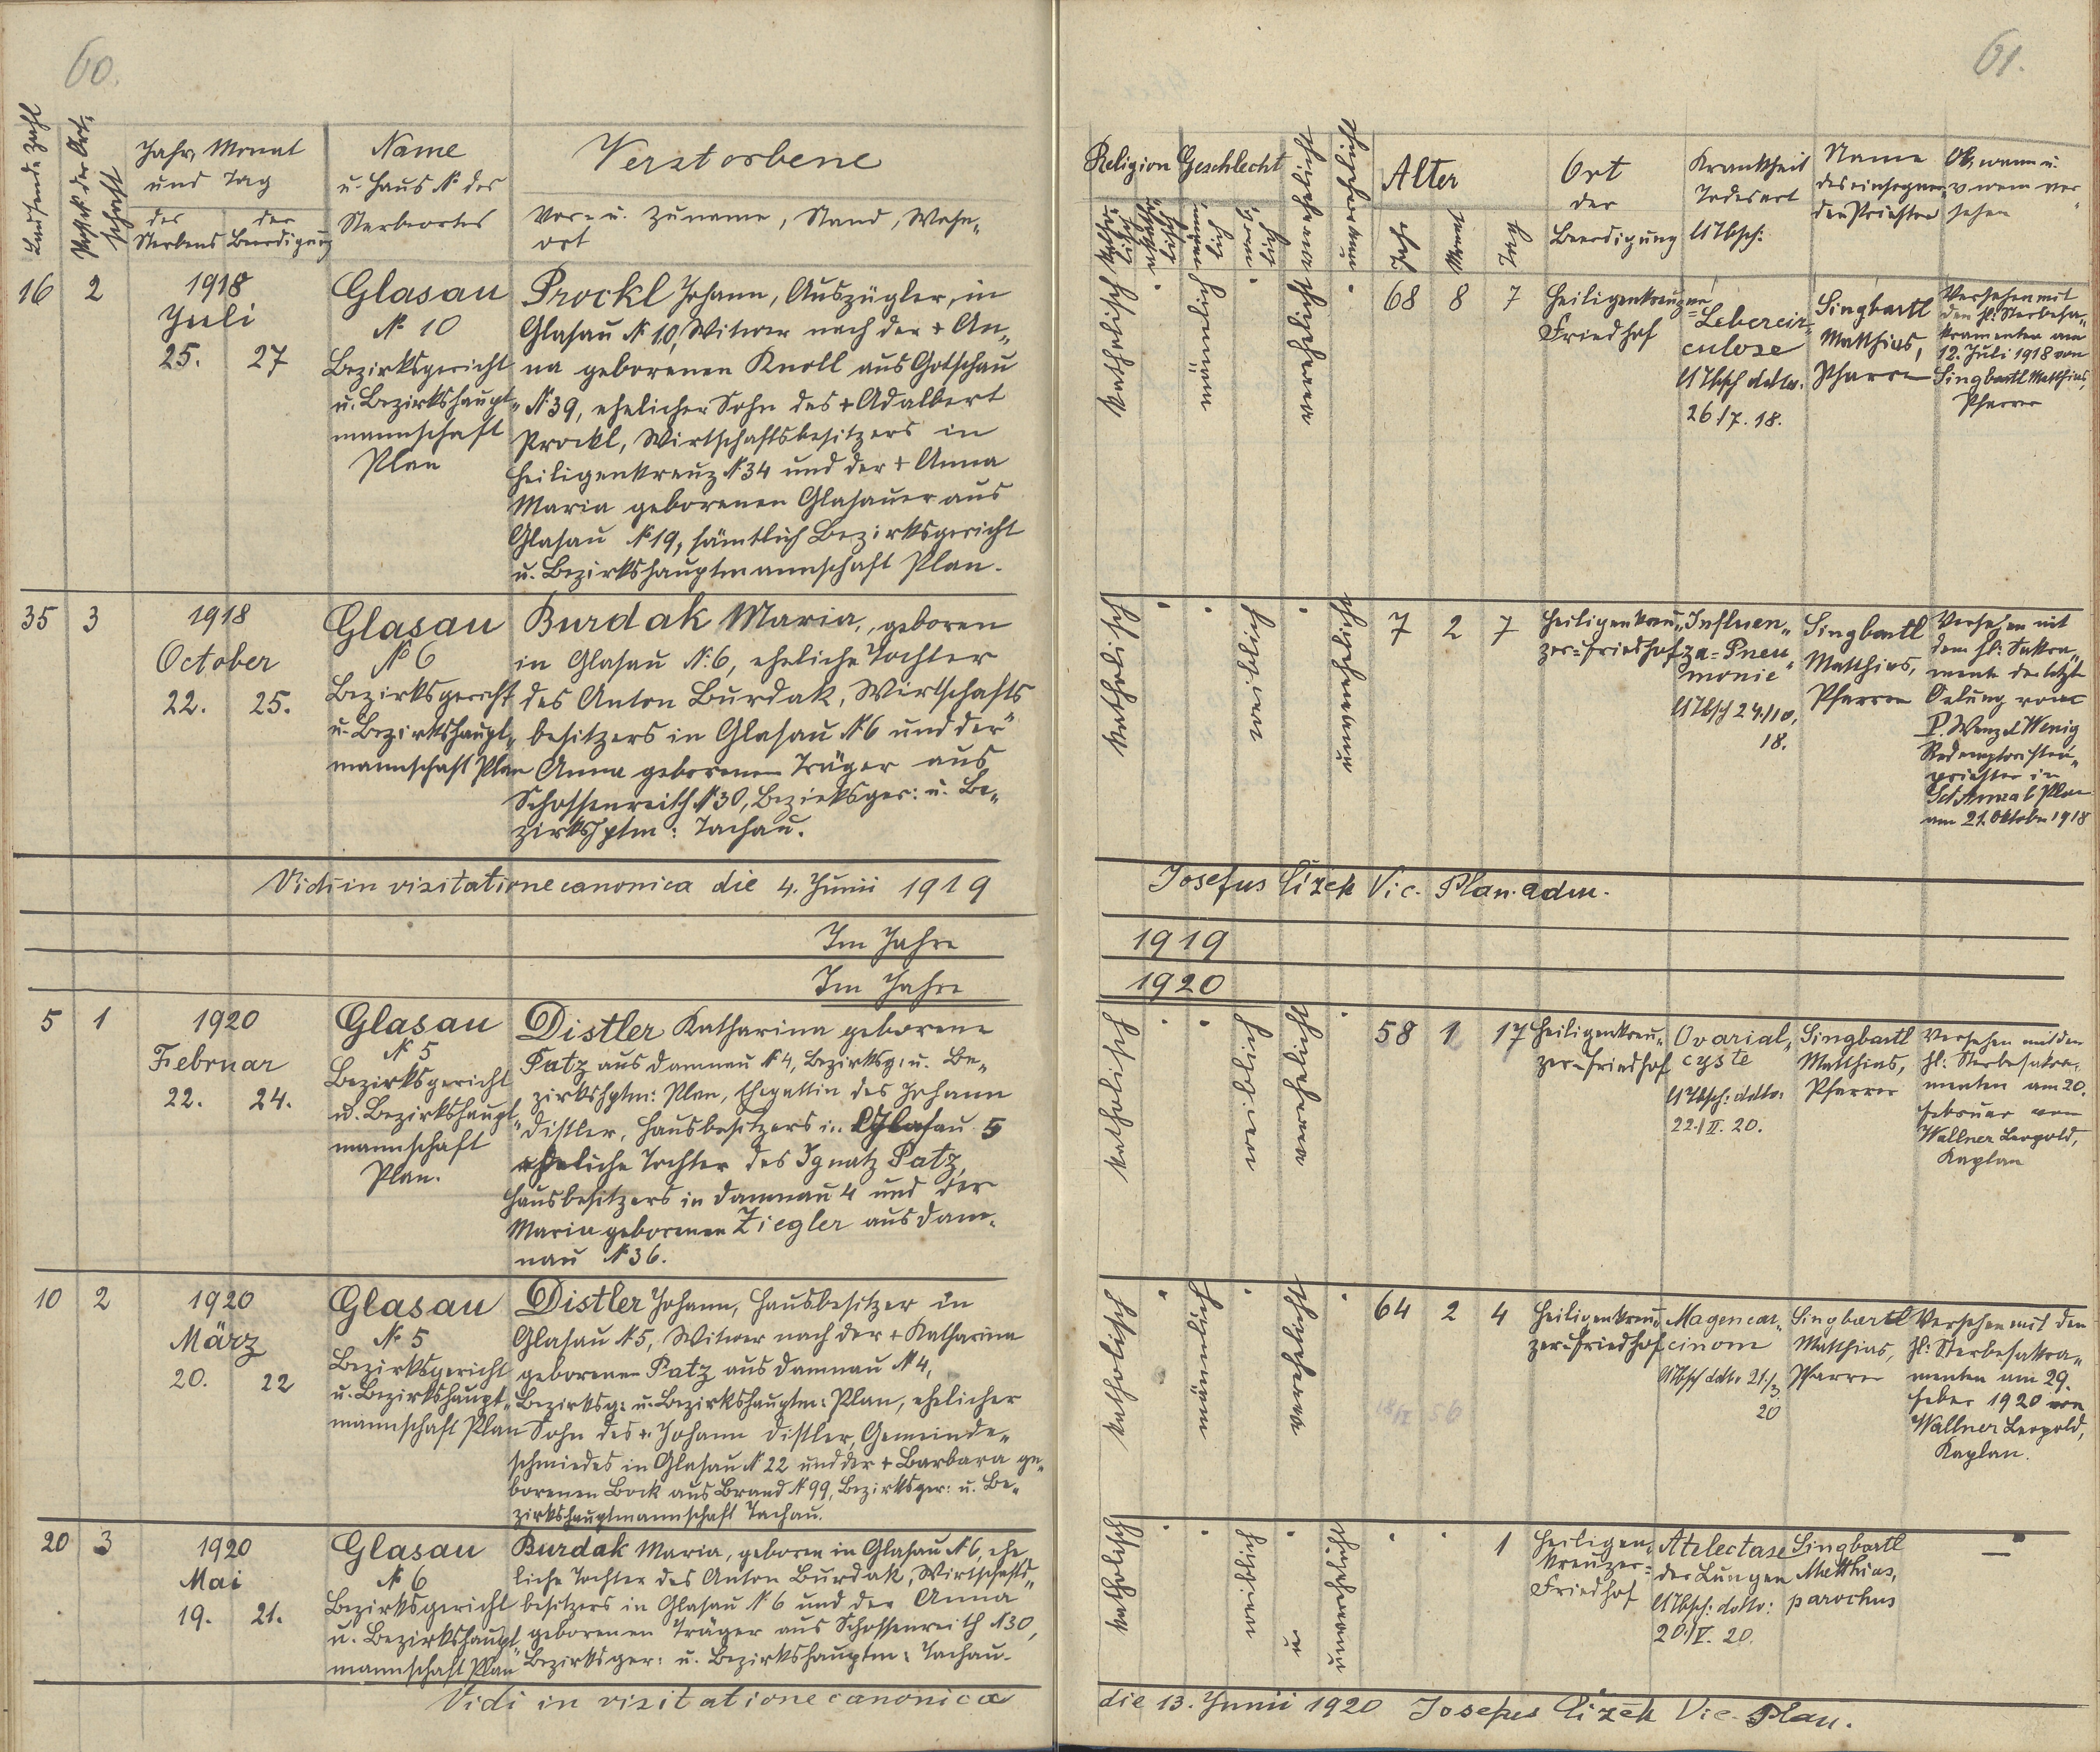 60.
Laufende Zahl
der Ort-
schaft
Jahr, Monat
und Tag
des
Sterbens
der
Beerdigung
Name
u. Haus № des
Sterbeortes
Verstorbene
Vor- u. Zuname, Stand, Wohn-
ort
16
2
1918
Juli
25. 27
Glasau
№ 10
Bezirksgericht
u. Bezirkshaupt-
mannschaft
Plan
Prockl Johann, Auszügler, in
Glasau № 10, Witwer nach der + An-
na geborenen Knoll aus Gotschau
№ 39, ehelicher Sohn des + Adalbert
Prockl, Wirtschaftsbesitzers in
Heiligenkreuz № 34 und der + Anna
Maria geborenen Glasauer aus
Glasau № 19, sämtlich Bezirksgericht
u. Bezirkshauptmannschaft Plan.
35
3
1918
October
22. 25.
Glasau
№ 6
Bezirksgericht
u. Bezirkshaupt-
mannschaft Plan
Burdak Maria, geboren
in Glasau №: 6, eheliche Tochter
des Anton Burdak, Wirtschafts-
besitzers in Glasau № 6 und der
Anna geborenen Träger aus
Schossenreith № 30, Bezirksger: u. Be-
zirkshptm: Tachau.
Vidi in visitatione canonica die 4. Junii 1919
Im Jahre
Im Jahre
5
1
1920
Februar
22. 24.
Glasau
№ 5
Bezirksgericht
u. Bezirkshaupt-
mannschaft
Plan.
Distler Katharina geborene
Patz aus Damnau № 4, Bezirksg: u. Be-
zirkshptm: Plan, Ehegattin des Johann
Distler, Hausbesitzers in Glasau 5
eheliche Tochter des Ignatz Patz,
Hausbesitzers in Damnau 4 und der
Maria geborenen Ziegler aus Dam-
nau № 36.
10
2
1920
März
20. 22
Glasau
№ 5
Bezirksgericht
u. Bezirkshaupt-
mannschaft Plan
Distler Johann, Hausbesitzer in
Glasau № 5, Witwer nach der + Katharina
geborenen Patz aus Damnau № 4,
Bezirksg: u. Bezirkshauptm: Plan, ehelicher
Sohn des + Johann Distler, Gemeinde-
schmiedes in Glasau № 22 und der + Barbara ge-
borenen Bock aus Brand № 99, Bezirksger: u. Be-
zirkshauptmannschaft Tachau.
20
3
1920
Mai
19. 21.
Glasau
№ 6
Bezirksgericht
u. Bezirkshaupt-
mannschaft Plan
Burdak Maria, geboren in Glasau № 6, ehe
liche Tochter des Anton Burdak, Wirtschafts-
besitzers in Glasau № 6 und der Anna
geborenen Träger aus Schossenreith № 30,
Bezirksger: u. Bezirkshauptm: Tachau.
Vidi in visitatione canonica
61.
Religion
Geschlecht
katho-
lisch
männ-
lich
weib-
lich
verehelicht
unverehelicht
Alter
Jahr
Monat
Tag
Ort
der
Beerdigung
Krankheit
Todesart
Name
des einsegnen-
den Priesters
Ob, wann u.
v. wem ver-
sehen
katholisch
männlich
verehelicht
68 8 7
Heiligenkreuzer
Friedhof
Lebercir-
culose
26/7. 18.
Singbartl
Matthias,
Pfarrer
Versehen mit
den hl: Sterbesa-
kramenten am
12. Juli 1918 von
Singbartl Matthias,
Pfarrer
katholisch
weiblich
unverehelicht
7 2 7
Heiligenkreu-
zer-Friedhof
Influen-
za-Pneu-
monie
24./10.
18.
Singbartl
Matthias,
Pfarrer
Versehen mit
dem hl: Sakra-
mente der letzt
Oelung vom
P. Wenzel Wenig
Redemptoristen-
priester in
Sct Anna b Plan
am 21. Oktober 1918
Josefus Čížek Vic. Plan. adm.
1919
1920
katholisch
weiblich
verehelicht
58 1 17
Heiligenkreu-
zer-Friedhof
Ovarial-
cyste
22./II. 20.
Singbartl
Matthias,
Pfarrer
Versehen mit den
hl: Sterbesakra-
menten am 20.
Februar von
Wallner Leopold,
Kaplan
katholisch
männlich
verehelicht
64 2 4
Heiligenkreu-
zer-Friedhof
Magencar-
cinom
21./3
20
Singbartl
Matthias,
Pfarrer
Versehen mit den
hl: Sterbesakra-
menten am 29.
Feber 1920 von
Wallner Leopold,
Kaplan.
katholisch
weiblich
unverehelicht
1
Heiligen-
kreuzer-
Friedhof
Atelectase
der Lungen
20./V. 20.
Singbartl
Matthias,
parochus
—
die 13. Junii 1920 Josefus Čížek Vic. Plan.